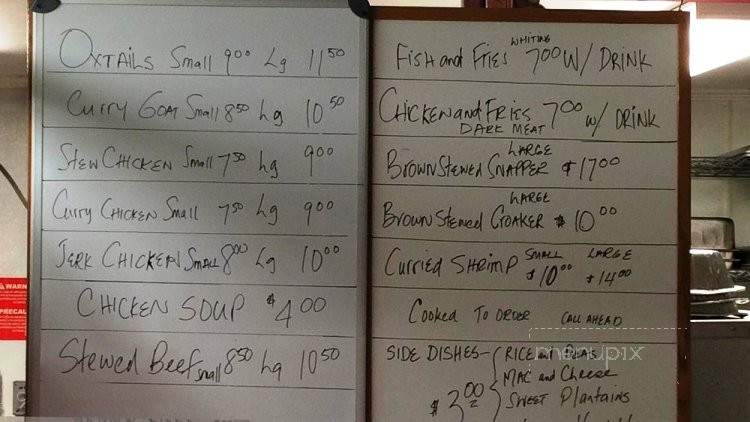 OXTAILS Small 9⁰⁰ Lg 11⁵⁰
Curry GOAT Small 8⁵⁰ Lg 10⁵⁰
STEW CHICKEN Small 7⁵⁰ Lg 9⁰⁰
Curry CHICKEN Small 7⁵⁰ Lg 9⁰⁰
JERK CHICKEN SMALL 8⁰⁰ Lg 10⁰⁰
CHICKEN SOUP $4.00
Stewed Beef small 8⁵⁰ Lg 10⁵⁰
WHITING
FISH and FRIES 7⁰⁰ W/ DRINK
CHICKEN and FRIES 7⁰⁰ w/ DRINK
DARK MEAT
LARGE
BROWN STEWED SNAPPER $17⁰⁰
LARGE
BROWN STEWED CROAKER $10⁰⁰
CURRIED SHRIMP SMALL $10⁰⁰ LARGE $14⁰⁰
COOKED TO ORDER CALL AHEAD
SIDE DISHES - RICE and PEAS
MAC and Cheese
SWEET Plantains
WARN
PRECAU
menupix